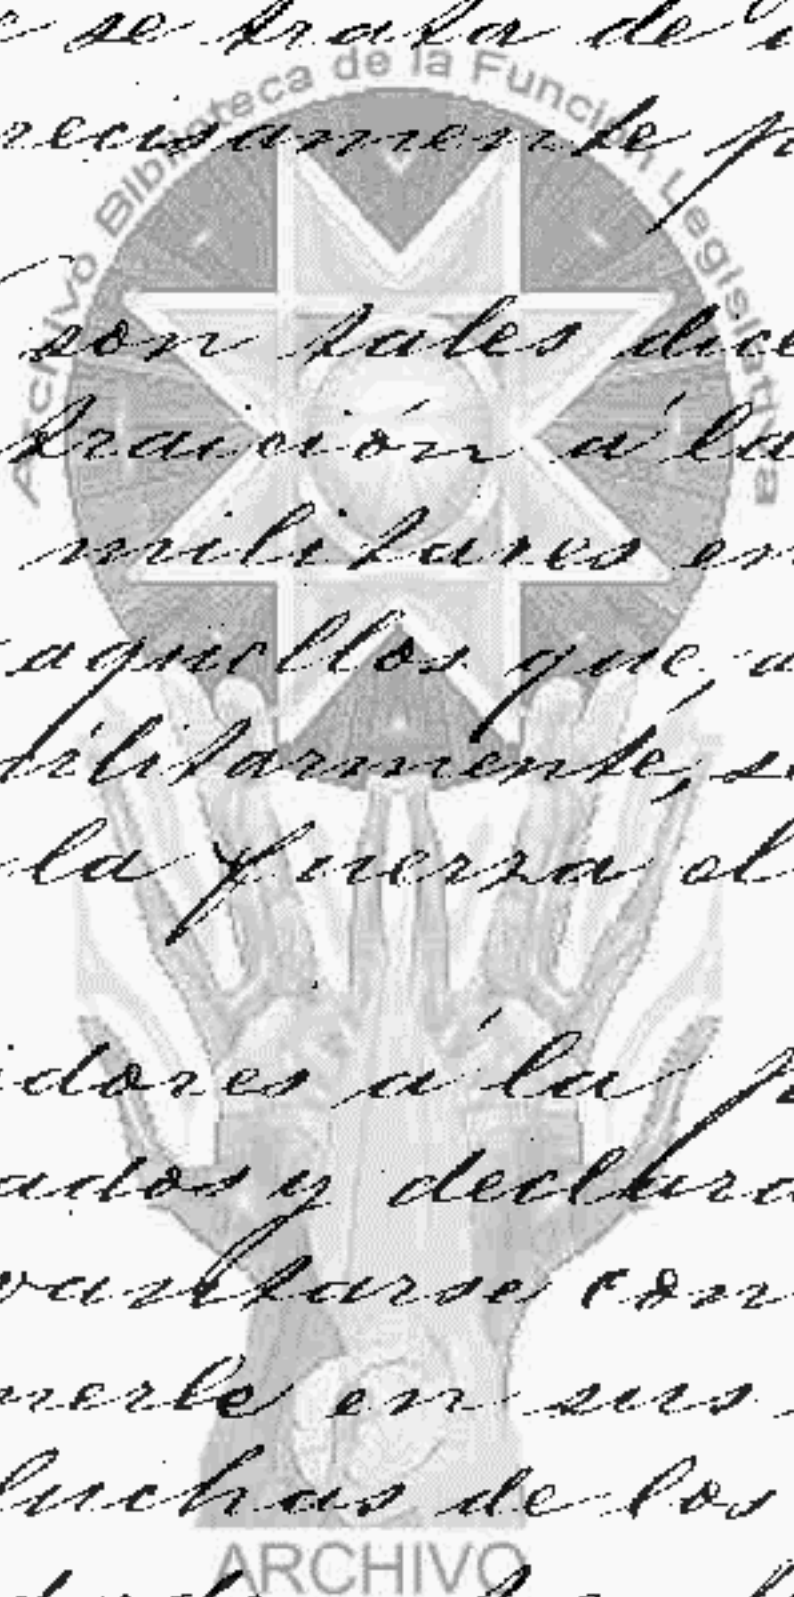 se trata de
Archivo Biblioteca de la Función Legislativa
recisamente p
son tales dice
traición á la
militares en
aquellos que, a
militarmente, se
la fuerza el
idores á la p
ados y declara
vantarse con
nerle en sus
luchas de los
ARCHIVO